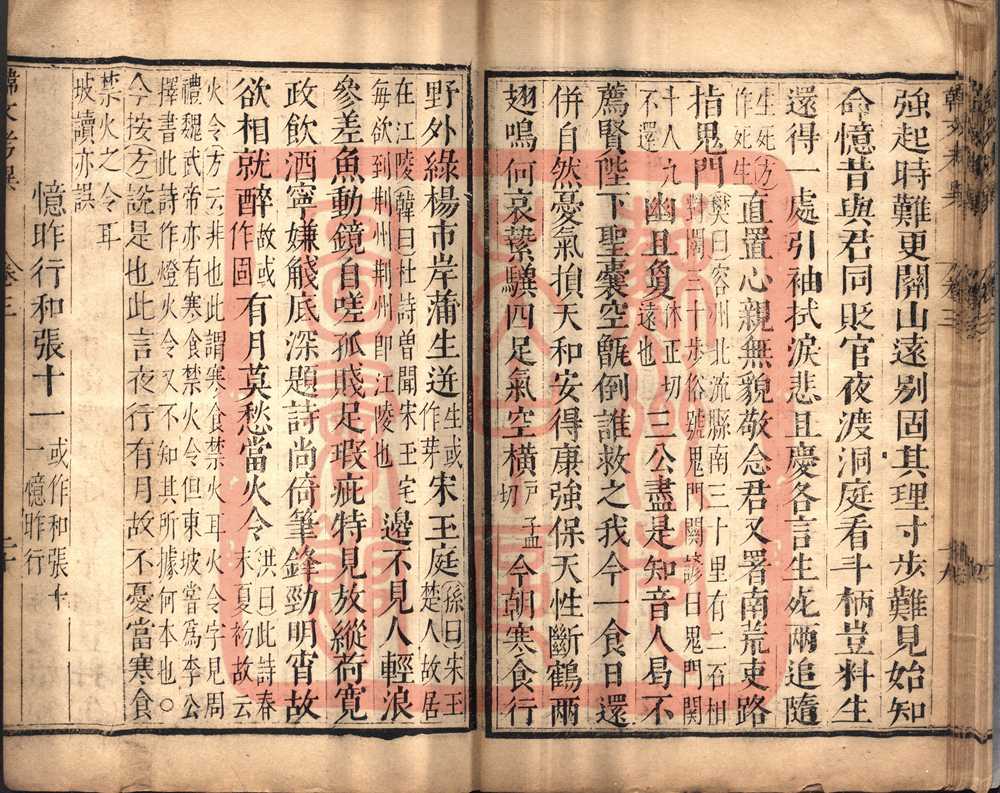 強起時難更關山遠別固其理寸步難見始知
命憶昔與君同貶官夜渡洞庭看斗柄豈料生
還得一處引袖拭淚悲且慶各言生死兩追隨
生死(方)作死生直置心親無貌敬念君又署南荒吏路
指鬼門(樊曰容州北流縣南三十里有二石相對闊三十步俗號鬼門關諺曰鬼門關十人九不還)幽且夐(休正切遠也)三公盡是知音人曷不
薦賢陛下聖囊空甑倒誰救之我今一食日還
併自然憂氣損天和安得康強保天性斷鶴兩
翅鳴何哀縶驥四足氣空橫(戸孟切)今朝寒食行
野外綠楊帀岸蒲生迸(生或作芽)宋玉庭(孫曰宋玉楚人故居
在江陵(韓曰杜詩曾聞宋玉宅每欲到荆州荆州即江陵也)邊不見人輕浪
參差魚動鏡自嗟孤賤足瑕疵特見放縱荷寬
政飲酒寧嫌觴底深題詩尚倚筆鋒勁明宵故
欲相就醉(故或作固)有月莫愁當火令(洪曰此詩春末夏初故云
火令(方)云非也此謂寒食禁火耳火令字見周
禮魏武帝亦有寒食禁火令但東坡嘗爲李公
擇書此詩作燈火令又不知其所據何本也○
今按(方)說是也此言夜行有月故不憂當寒食
禁火之令耳
坡讀亦誤
憶昨行和張十一(或作和張十一憶昨行)
韓文考異
卷三